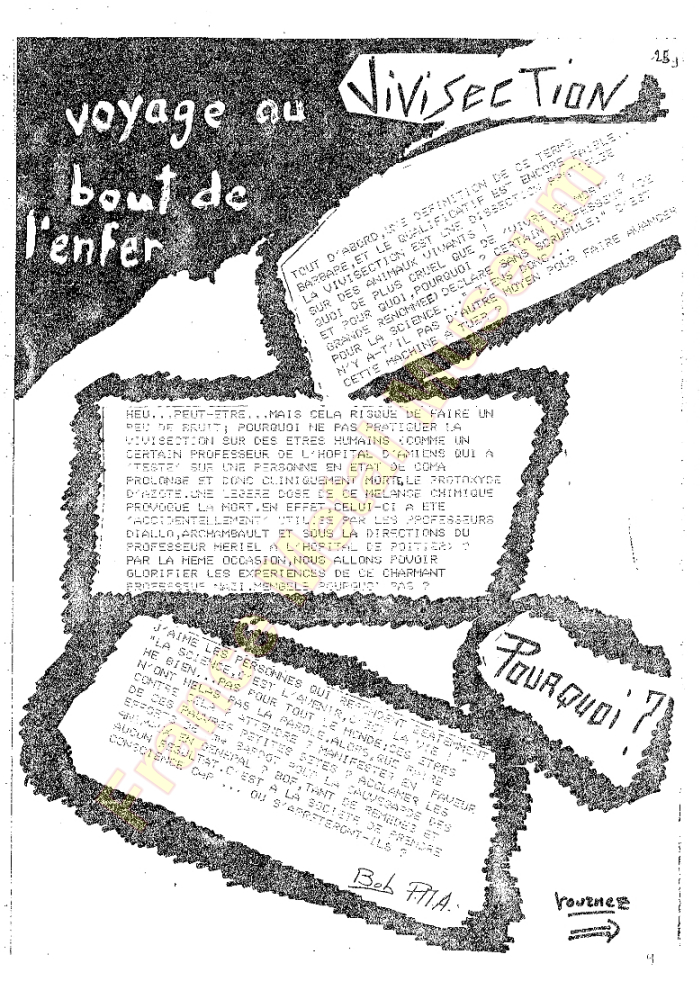 25
voyage au
bout de
l'enfer
VIVISECTION
TOUT D'ABORD,UNE DEFINITION DE CE TERME
BARBARE,ET LE QUALIFICATIF EST ENCORE FAIBLE...
LA VIVISECTION EST UNE DISSECTION
SUR DES ANIMAUX VIVANTS !
QUOI DE PLUS CRUEL QUE DE
ET POUR QUOI,POURQUOI ?
GRANDE RENOMMEE) DECLARE SANS SCRUPULE:" C'EST
POUR LA SCIENCE...
N'Y A-T'IL PAS D'AUTRE MOYEN POUR FAIRE AVANCER
CETTE MACHINE A TUER ?
HEU...PEUT-ETRE...MAIS CELA RISQUE DE FAIRE UN
PEU DE BRUIT; POURQUOI NE PAS PRATIQUER LA
VIVISECTION SUR DES ETRES HUMAINS (COMME UN
CERTAIN PROFESSEUR DE L'HOPITAL D'AMIENS QUI A
"TESTE" SUR UNE PERSONNE EN ETAT DE COMA
PROLONGE ET DONC CLINIQUEMENT MORTE,LE PROTOXYDE
D'AZOTE.UNE LEGERE DOSE DE CE MELANGE CHIMIQUE
PROVOQUE LA MORT.EN EFFET,CELUI-CI A ETE
"ACCIDENTELLEMENT" UTILISE PAR LES PROFESSEURS
DIALLO,ARCHAMBAULT ET SOUS LA DIRECTIONS DU
PROFESSEUR MERIEL A L'HOPITAL DE POITIERS) ?
PAR LA MEME OCCASION,NOUS ALLONS POUVOIR
GLORIFIER LES EXPERIENCES DE CE CHARMANT
PROFESSEUR NAZI,MENGELE POURQUOI PAS ?
POURQUOI ?
J'AIME LES PERSONNES QUI REPONDENT BEATEMENT
"LA SCIENCE,C'EST L'AVENIR,C'EST LA VIE ! "
HE BIEN...PAS POUR TOUT LE MONDE;CES ETRES
N'ONT HELAS PAS LA PAROLE,ALORS,QUE FAIRE
CONTRE CELA ? ATTENDRE ? MANIFESTER EN FAVEUR
DE CES PAUVRES PETITES BETES ? ACCLAMER LES
EFFORTS DE BARDOT POUR LA SAUVEGARDE DES
ANIMAUX EN GENERAL ? BOF,TANT DE REMEDES ET
AUCUN RESULTAT.C'EST A LA SOCIETE DE PRENDRE
CONSCIENCE CAR ... OU S'ARRETERONT-ILS ?
Bob P.M.A.
TOURNEZ
9